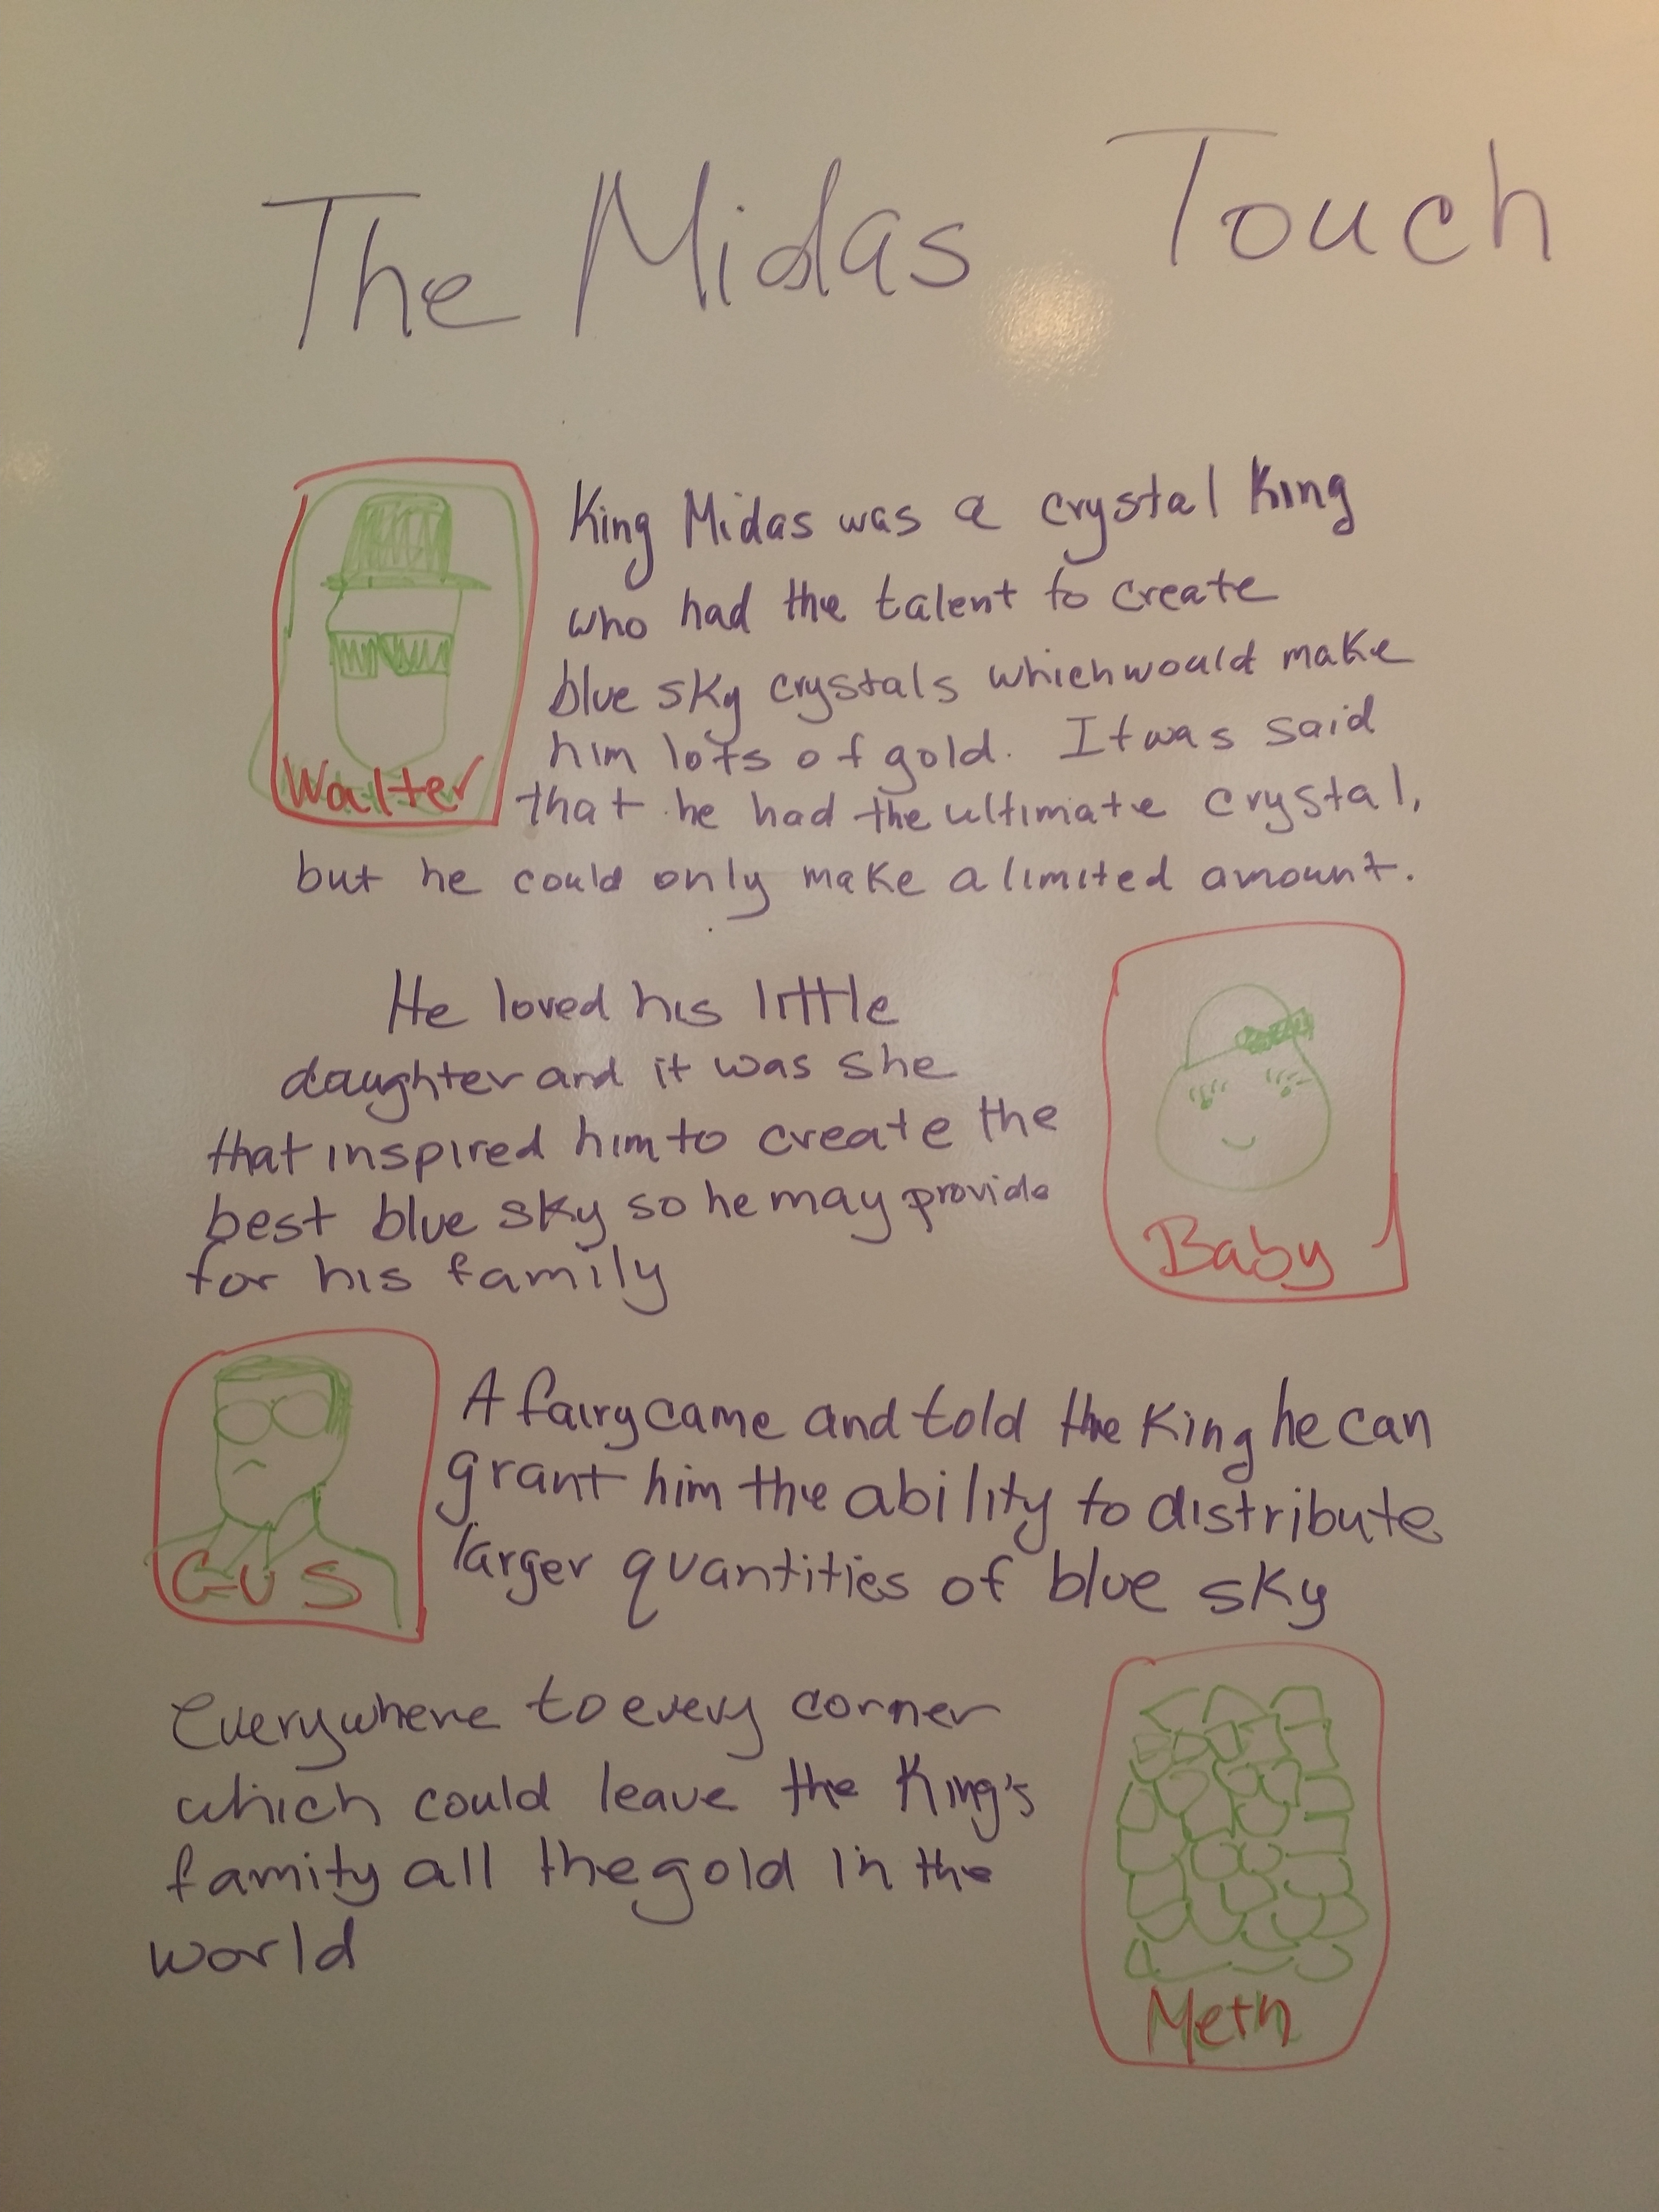 The Midas Touch
King Midas was a crystal King
who had the talent to create
blue sky crystals which would make
him lots of gold. It was said
that he had the ultimate crystal,
but he could only make a limited amount.
Walter
He loved his little
daughter and it was she
that inspired him to create the
best blue sky so he may provide
for his family
Baby
A fairy came and told the King he can
grant him the ability to distribute
larger quantities of blue sky
GUS
Everywhere to every corner
which could leave the King's
family all the gold in the
world
Meth